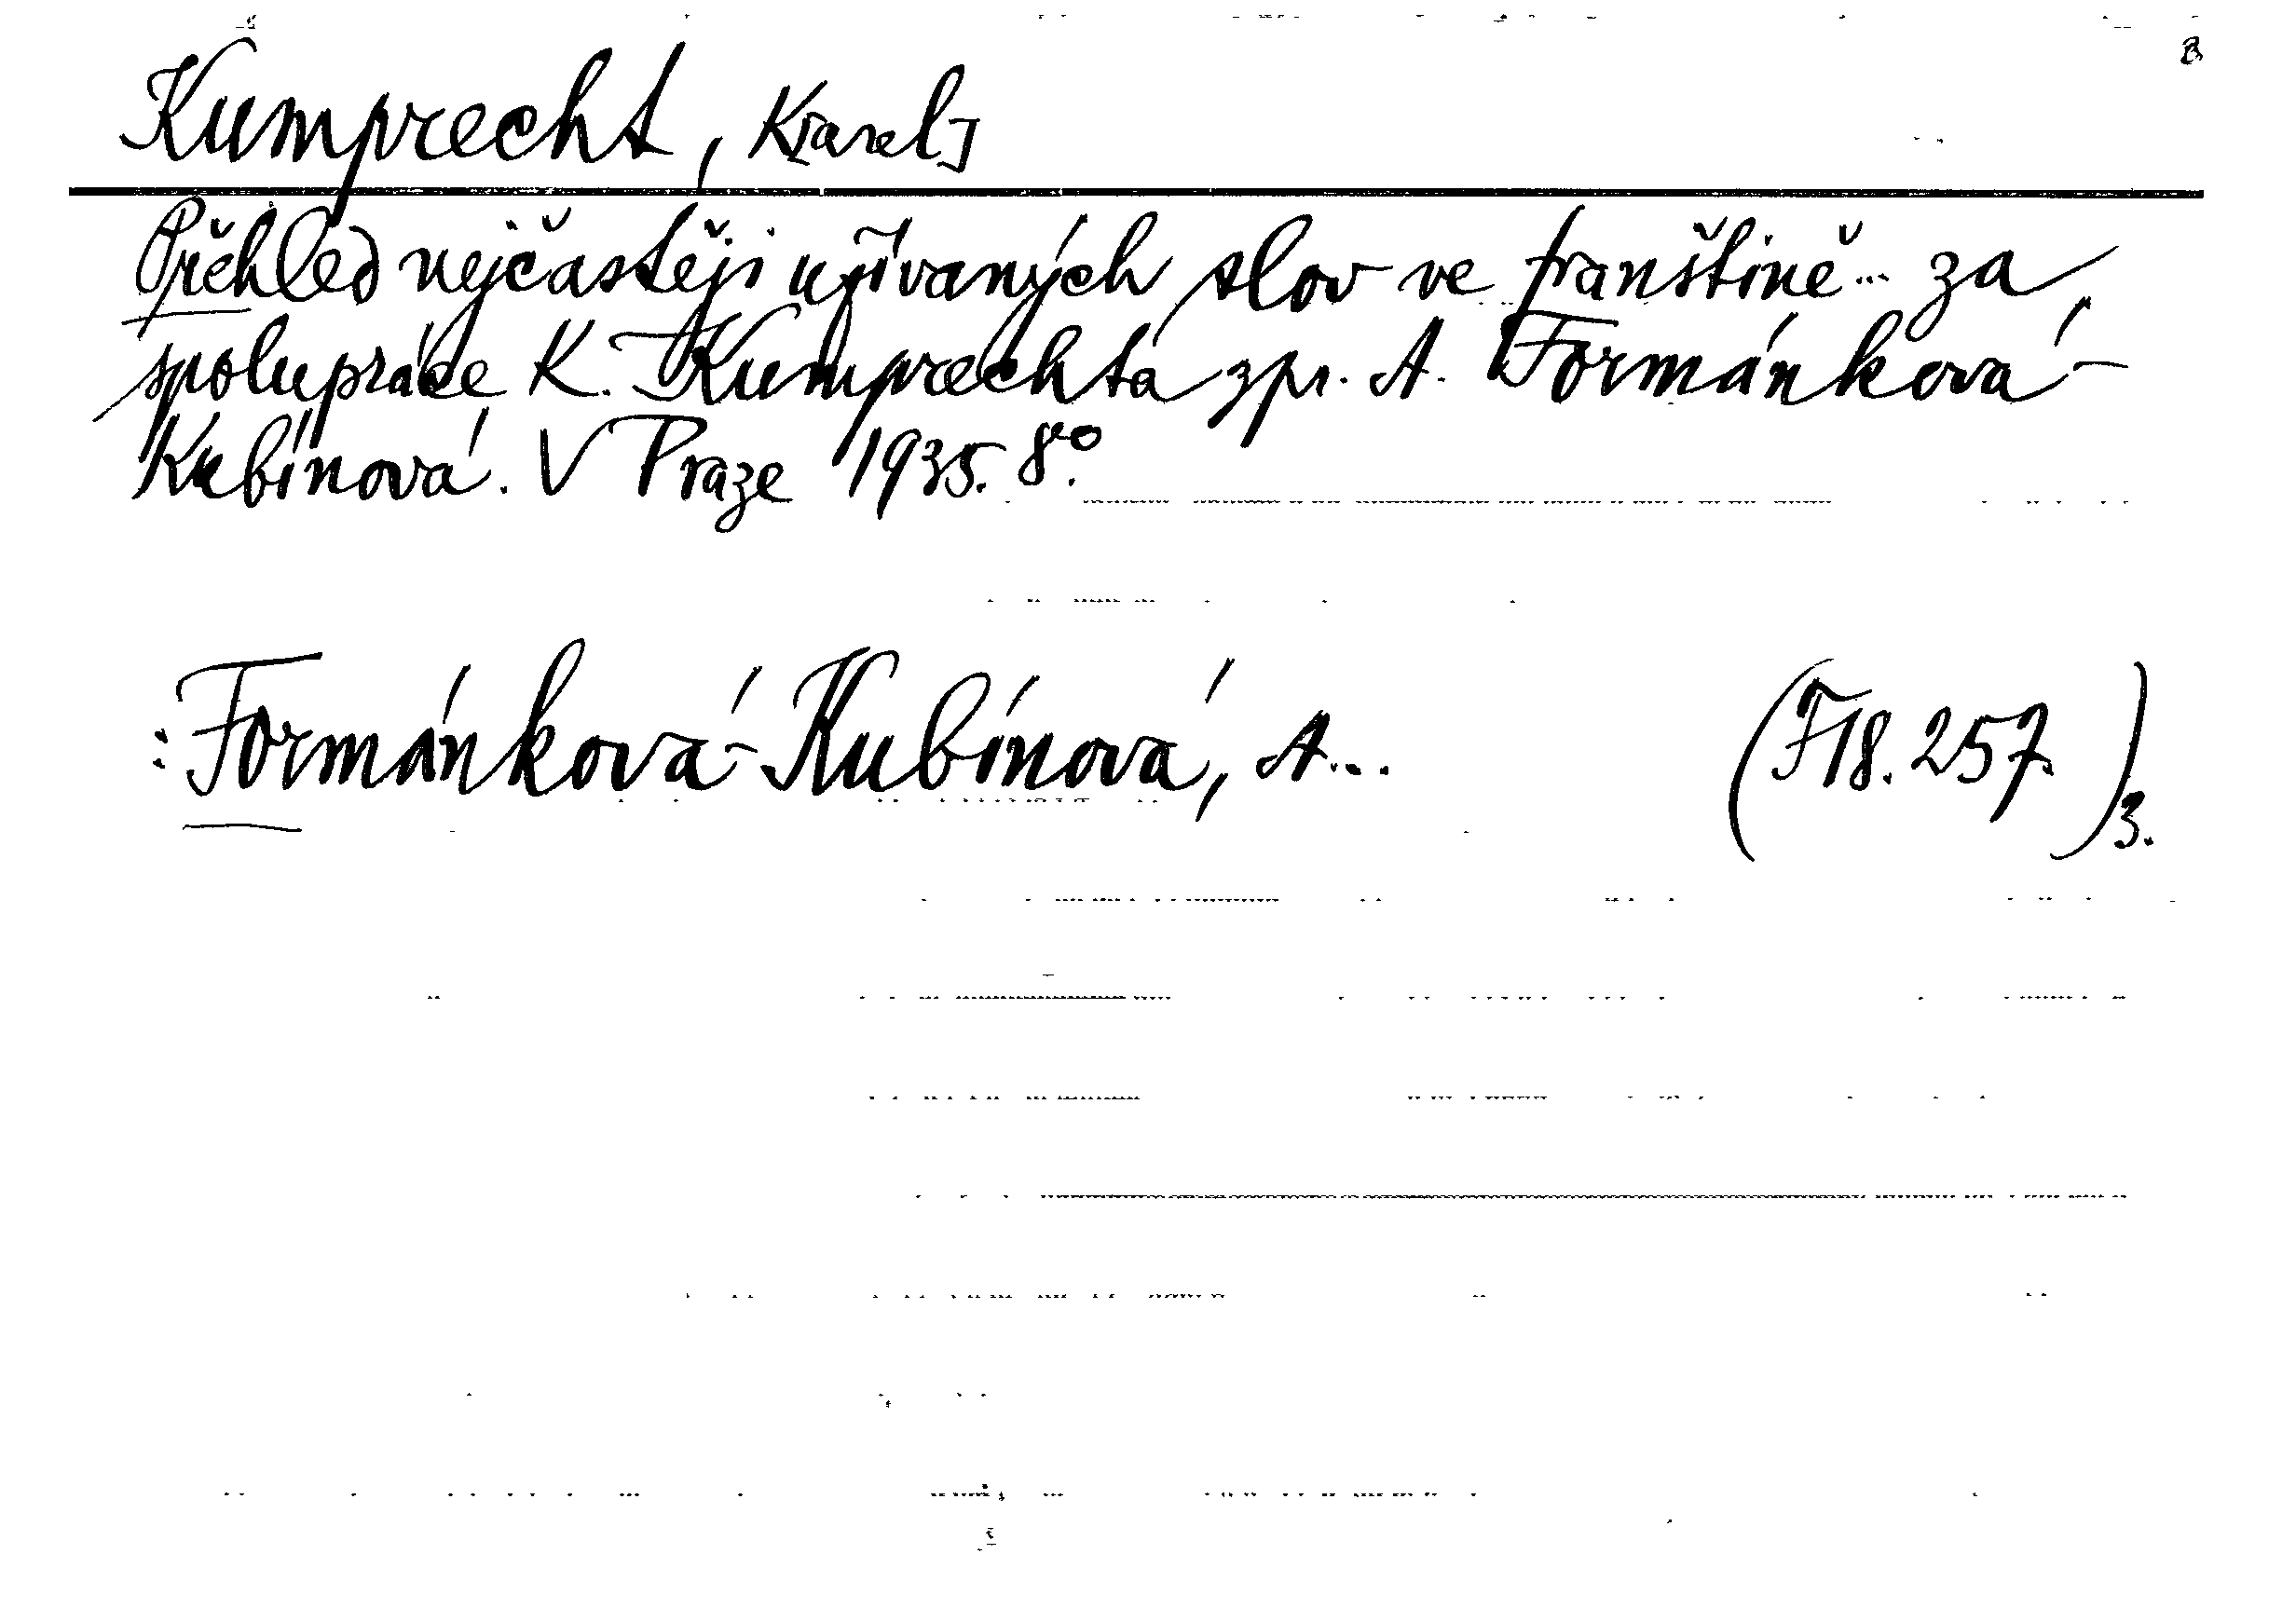 B
Kumprecht, K[arel]
Přehled nejčastěji užívaných slov ve franštině... za
spolupráce K. Kumprechta zpr. A. Formánková-
Kubínová. V Praze 1935. 8°.
:Formánková-Kubínová, A... (F18.257)3.